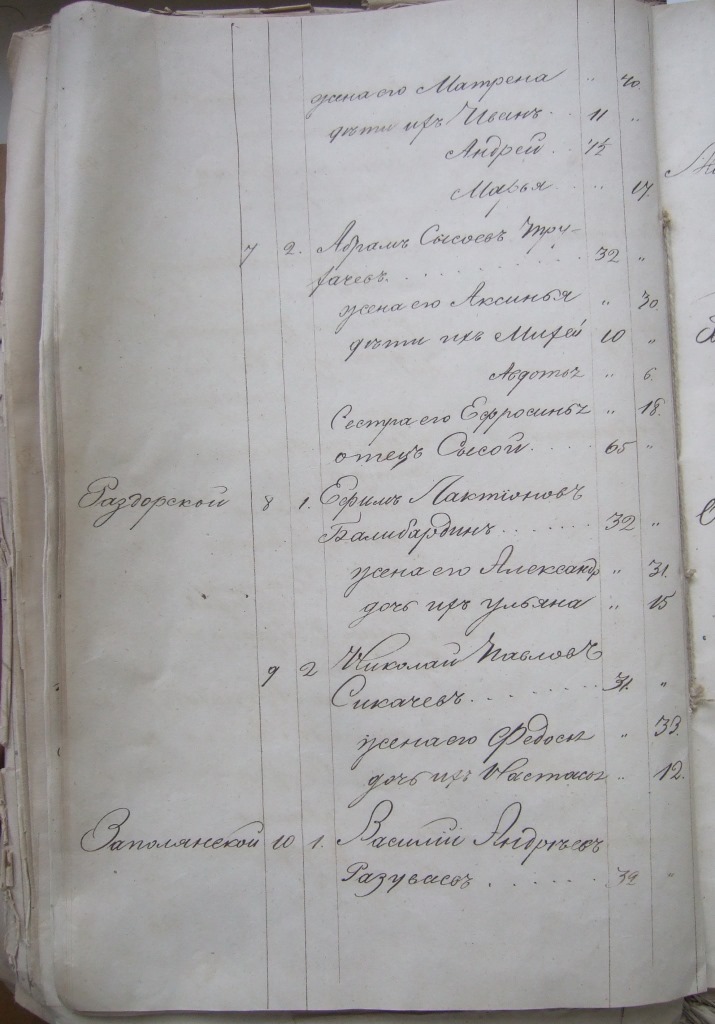 жена его Матрена " 40.
дѣти ихъ Иванъ . . 11 "
Андрей . . "
Марья . . " 17.
7 2. Абрамъ Сысоевъ Тру-
качевъ. . . . . . . . . . 32 "
жена его Аксинья " 30
дѣти ихъ Михей 10 "
Авдотья " 6.
Сестра его Ефросинья " 18.
отецъ Сысой. . . . 65 "
Раздорской 8 1. Ефимъ Лактіоновъ
Балибардинъ . . . . . . 32 "
жена его Александр " 31.
дочь ихъ Ульяна " 15
9 2 Николай Павловъ
Сикачевъ. . . . . . . . 31. "
жена его Федосья " 33.
дочь ихъ Настасья " 12.
Заполянской 10 1. Василій Андрѣевъ
Разуваевъ . . . . . . . 39 "